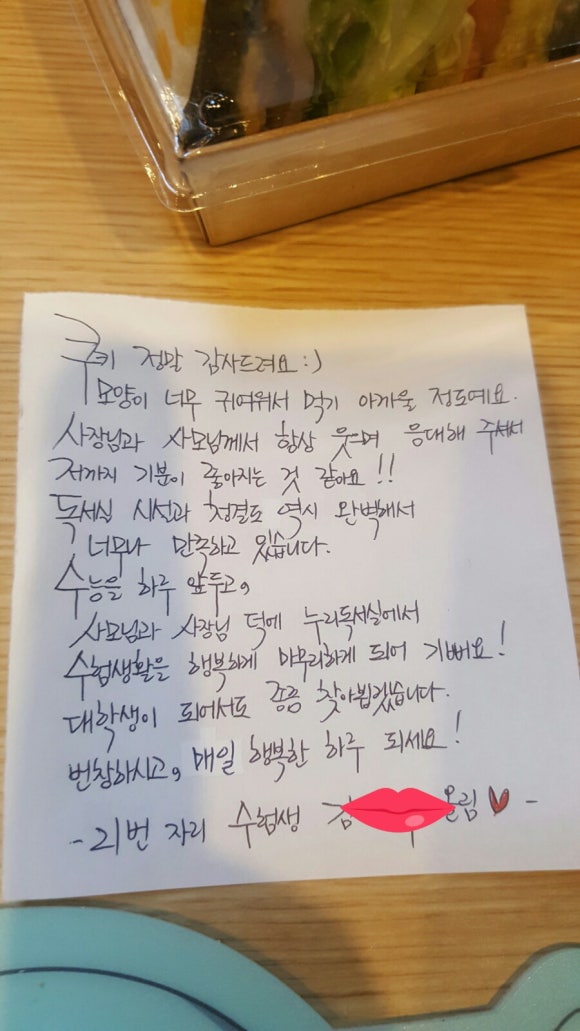 쿠키 정말 감사드려요 :)
모양이 너무 귀여워서 먹기 아까울 정도예요.
사장님과 사모님께서 항상 웃으며 응대해 주셔서
저까지 기분이 좋아지는 것 같아요!!
독서실 시설과 청결도 역시 완벽해서
너무나 만족하고 있습니다.
수능을 하루 앞두고,
사모님과 사장님 덕에 누리독서실에서
수험생활을 행복하게 마무리하게 되어 기뻐요!
대학생이 되어서도 종종 찾아뵙겠습니다.
번창하시고, 매일 행복한 하루 되세요!
- 21번 자리 수험생 김 올림 ♥ -